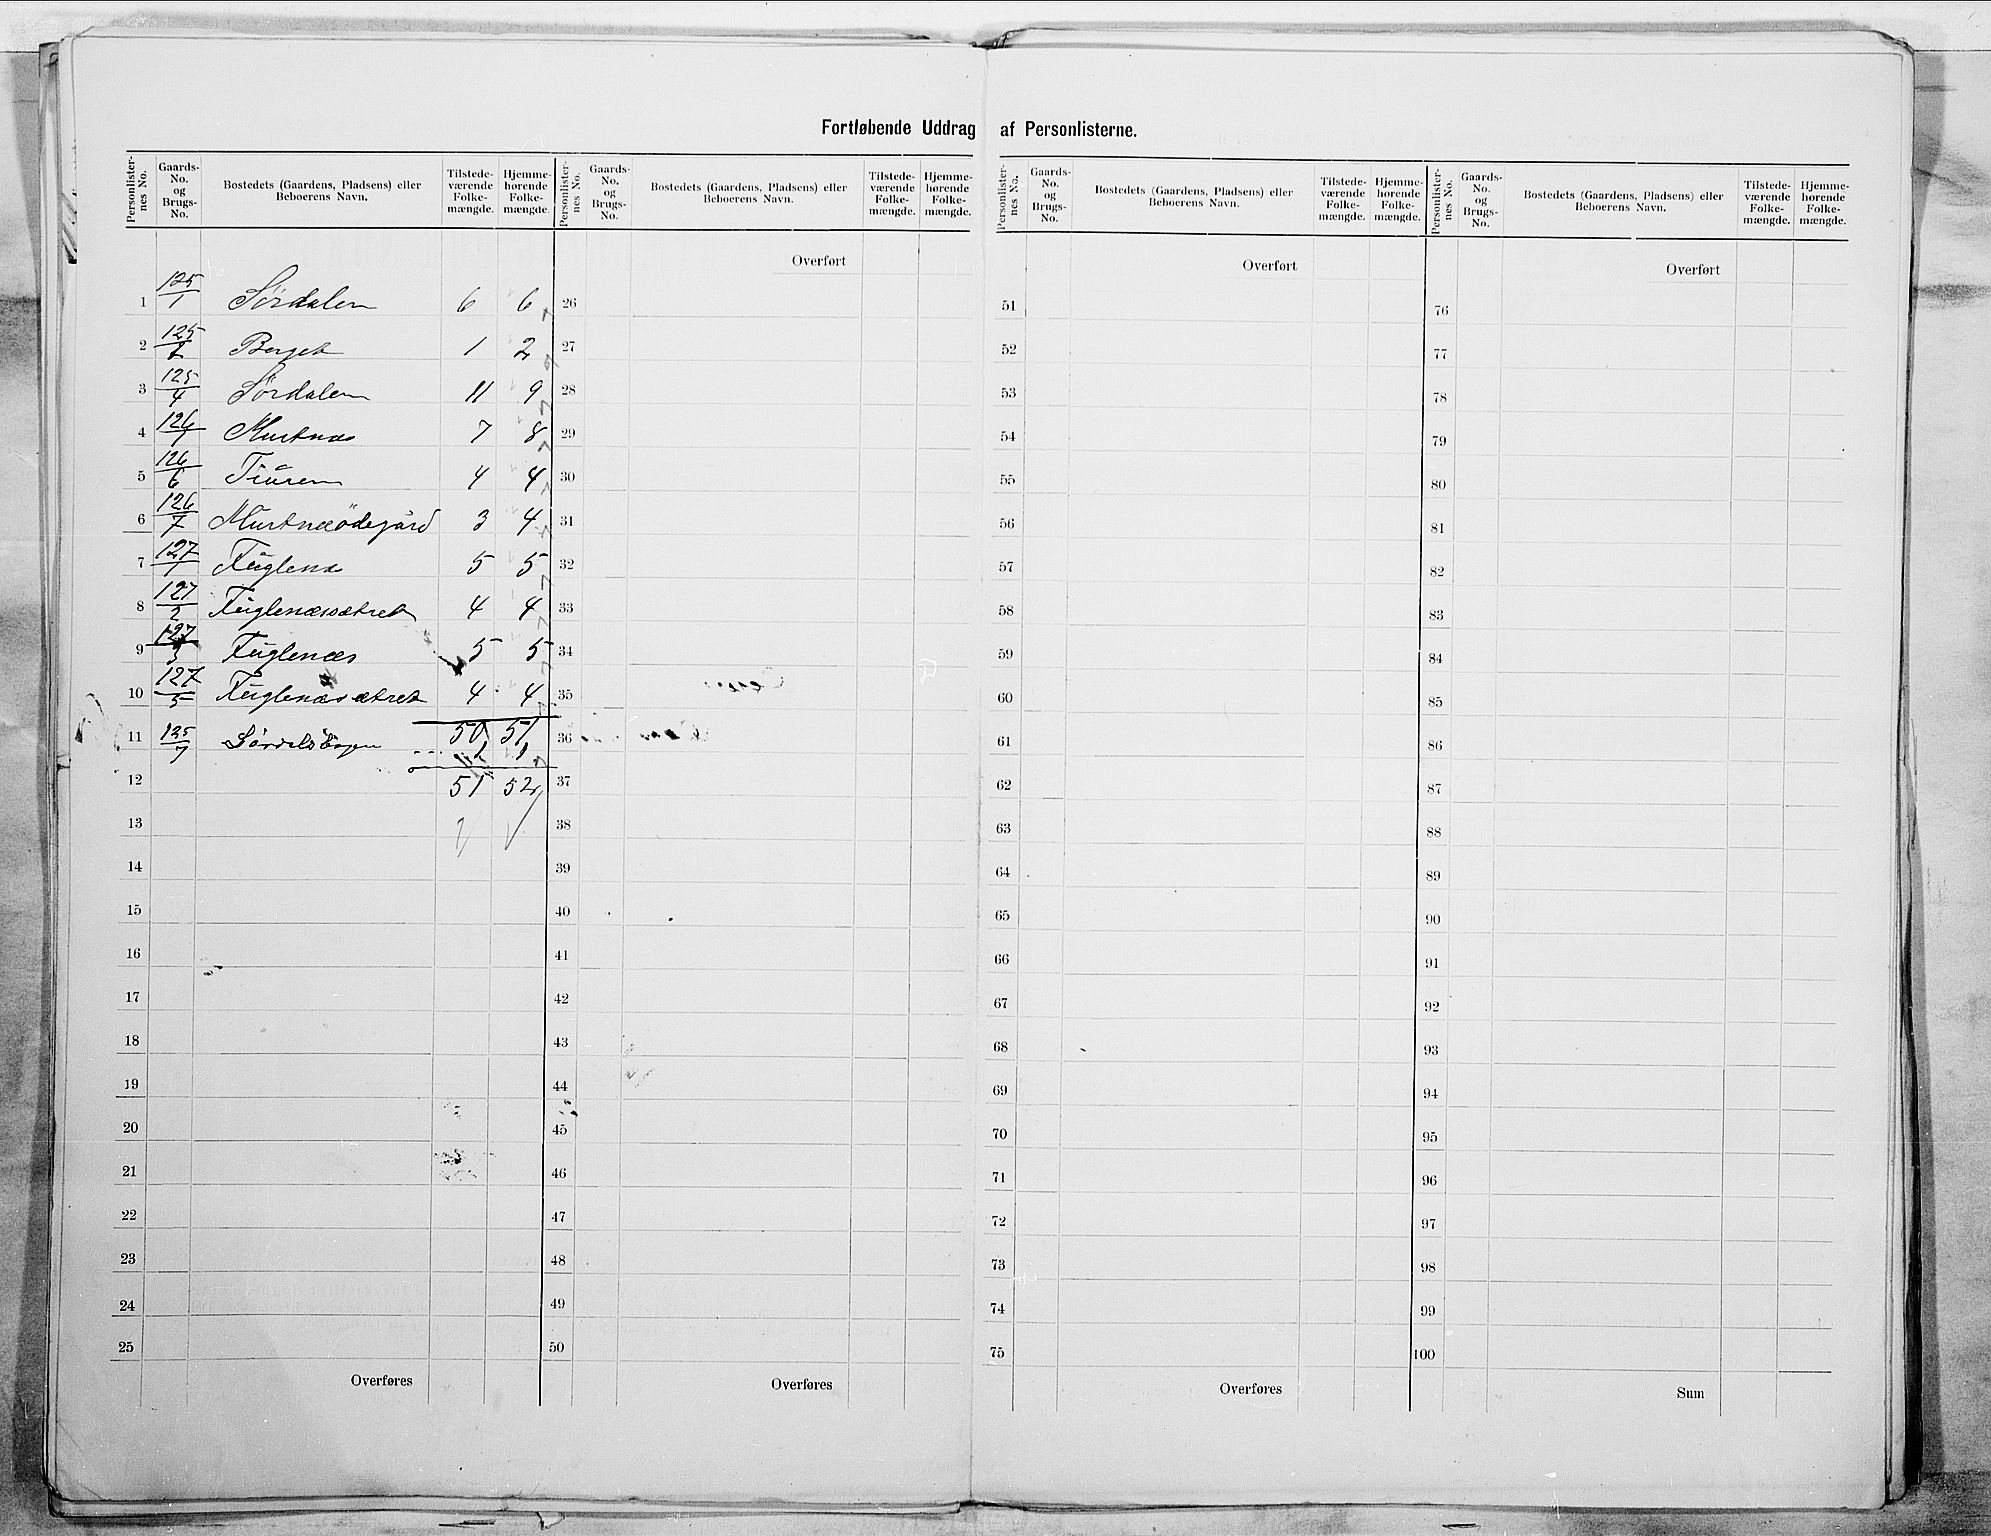 Fortløbende Uddrag af Personlisterne.
Personlisternes No. | Gaards-No. og Brugs-No. | Bostedets (Gaardens, Pladsens) eller Beboerens Navn. | Tilstedeværende Folkemængde. | Hjemmehørende Folkemængde.
Personlisternes No. | Gaards-No. og Brugs-No. | Bostedets (Gaardens, Pladsens) eller Beboerens Navn. | Tilstedeværende Folkemængde. | Hjemmehørende Folkemængde.
Personlisternes No. | Gaards-No. og Brugs-No. | Bostedets (Gaardens, Pladsens) eller Beboerens Navn. | Tilstedeværende Folkemængde. | Hjemmehørende Folkemængde.
Personlisternes No. | Gaards-No. og Brugs-No. | Bostedets (Gaardens, Pladsens) eller Beboerens Navn. | Tilstedeværende Folkemængde. | Hjemmehørende Folkemængde.
Overført Overført Overført
1 125/1 Sørdalen 6 6 26 51 76
2 125/2 Berget 1 2 27 52 77
3 125/4 Sørdalen 11 9 28 53 78
4 126/1 Murtnæs 7 8 29 54 79
5 126/6 Tiuren 4 4 30 55 80
6 126/7 Murtnæødegård 3 4 31 56 81
7 127/1 Fuglenæs 5 5 32 57 82
8 127/2 Fuglenæssætret 4 4 33 58 83
9 127/3 Fuglenæs 5 5 34 59 84
10 127/5 Fuglenæssætret 4 4 35 60 85
50 51
11 125/7 1 1 36 61 86
12 51 52 37 62 87
13 38 63 88
14 39 64 89
15 40 65 90
16 41 66 91
17 42 67 92
18 43 68 93
19 44 69 94
20 45 70 95
21 46 71 96
22 47 72 97
23 48 73 98
24 49 74 99
25 50 75 100
Overføres Overføres Overføres Sum